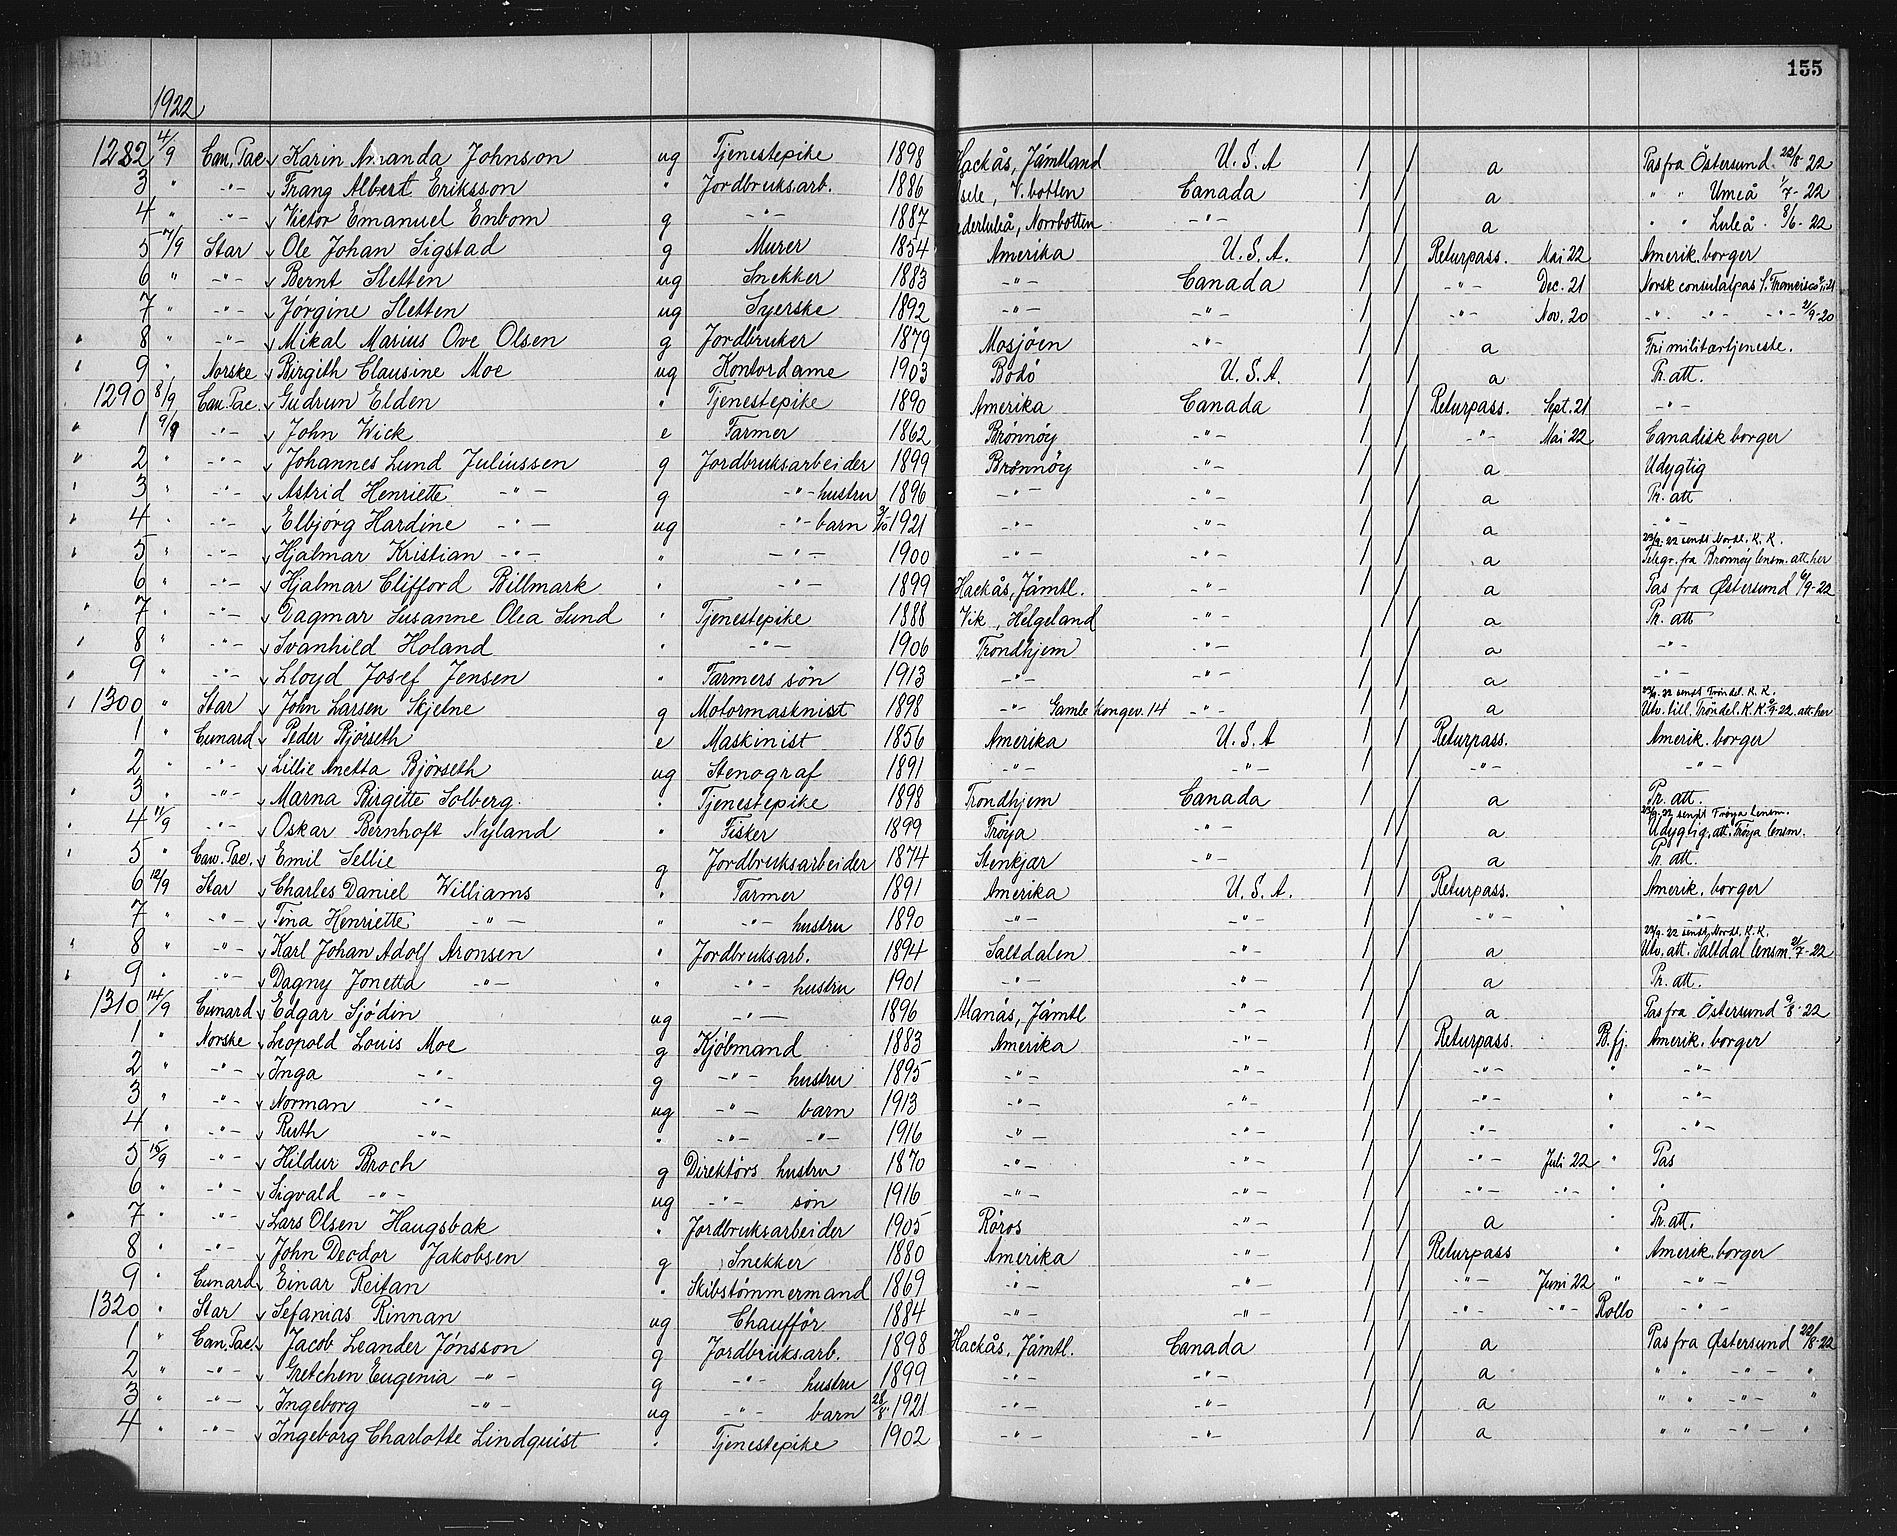 155
1922
1282 4/9 Can. Pac. Karin Amanda Johnson ug Tjenestepike 1898 Hackås, Jämtland U.S.A a Pas fra Östersund 22/8-22
3 " -"- Frang Albert Eriksson " Jordbruksarb. 1886 sele, V. botten Canada a " " Umeå 1/7-22
4 " -"- Victor Emanuel Enbom g -"- 1887 derluleå, Norrbotten -"- a " " Luleå 8/6-22
5 7/9 Star Ole Johan Sigstad g Murer 1854 Amerika U.S.A. Returpass. Mai 22 Amerik. borger
6 " -"- Bernt Sletten ug Snekker 1883 -"- Canada -"- Dec. 21 Norsk consulatpas S. Francisco
7 " -"- Jörgine Sletten ug Syerske 1892 -"- -"- -"- Nov. 20 -"- " -"- 21/9-20
8 " -"- Mikal Marius Ove Olsen g Jordbruker 1879 Mosjöen -"- a Fri militærtjeneste.
9 " Norske Birgith Clausine Moe ug Kontordame 1903 Bodö U.S.A. a Pr. att.
1290 8/9 Can. Pac. Gudrun Elden " Tjenestepike 1890 Amerika Canada Returpass. Sept. 21 -"-
1 9/9 -"- John Wick e Farmer 1862 Brönnöy -"- -"- Mai 22 Canadisk borger
2 " -"- Johannes Lund Juliussen g Jordbruksarbeider 1899 Brønnöy -"- a Udygtig
3 " -"- Astrid Henriette -"- g -"- hustru 1896 -"- -"- a Pr. att
4 " -"- Elbjörg Hardine -"- ug -"- barn 3/10 1921 -"- -"- a -"-
5 " -"- Hjalmar Kristian -"- " -"- 1900 -"- -"- a 23/9.22 sendt Nordl. K.K. Telegr. fra Brönnöy lensm. att. her
6 " -"- Hjalmar Clifford Billmark " -"- 1899 Hackås, Jämtl. -"- a Pas fra Østersund 6/9-22
7 " -"- Dagmar Susanne Olea Sund " Tjenestepike 1888 Vik, Helgeland -"- a Pr. att
8 " -"- Svanhild Holand " -"- 1906 Trondhjem -"- a -"-
9 " -"- Lloyd Josef Jensen " Farmers sön 1913 -"- -"- a -"-
1300 " Star John Larsen Skjelne g Motormasknist 1898 -"- Gamle Kongev. 14 -"- a 23/9.22 sendt Tröndel. K.K. Utv. till. Tröndel. K.K. 22. att. her
1 " Cunard Peder Björseth e Maskinist 1856 Amerika U.S.A Returpass. Amerik. borger
2 " -"- Lillie Anetta Björseth ug Stenograf 1891 -"- -"- -"- -"-
3 " -"- Marna Birgitte Solberg. " Tjenestepike 1898 Trondhjem Canada a Pr. att.
4 11/9 -"- Oskar Bernhoft Nyland " Fisker 1899 Fröya -"- a 23/9.22 sendt Fröya lensm. Udygtig, att. Fröya lensm.
5 " Can. Pac. Emil Sellie g Jordbruksarbeider 1874 Stenkjær -"- a Pr. att.
6 12/9 Star Charles Daniel Williams " Farmer 1891 Amerika U.S.A. Returpass. Amerik. borger
7 " -"- Tina Henriette -"- " -"- hustru 1890 -"- -"- -"- -"-
8 " -"- Karl Johan Adolf Aronsen " Jordbruksarb. 1894 Saltdalen -"- a 23/9.22 sendt Nordl. K.K. Utv. att. Saltdal lensm. 21/7-22
9 " -"- Dagny Jonetta -"- " -"- hustru 1901 -"- -"- a Pr. att.
1310 14/9 Cunard Edgar Sjödin ug -"- 1896 Manås, Jämtl -"- a Pas fra Östersund 9/8-22
1 " Norske Leopold Louis Moe g Kjöbmand 1883 Amerika -"- Returpass. B.fj. Amerik. borger
2 " -"- Inga -"- g -"- hustru 1895 -"- -"- -"- " -"-
3 " -"- Norman -"- ug -"- barn 1913 -"- -"- -"- " -"-
4 " -"- Ruth -"- " -"- -"- 1916 -"- -"- -"- " -"-
5 15/9 -"- Hildur Broch g Direktörs hustru 1870 -"- -"- -"- Juli 22 " Pas
6 " -"- Sigvald -"- ug -"- sön 1916 -"- -"- -"- -"- " "
7 " -"- Lars Olsen Haugsbak " Jordbruksarbeider 1905 Röros -"- a " Pr. att.
8 " -"- John Deodor Jakobsen g Snekker 1880 Amerika -"- Returpass " Amerik. borger
9 " Cunard Einar Reitan " Skibstömmermand 1869 -"- -"- -"- Juni 22 " -"-
1320 " Star Sefanias Rinnan ug Chaufför 1884 -"- -"- -"- -"- Rollo -"-
1 " Can. Pac. Jacob Leander Jönsson g Jordbruksarb. 1898 Hackås, Jämtl. Canada a Pas fra Østersund 22/8-22
2 " -"- Gretchen Eugenia -"- g -"- hustru 1899 -"- -"- a " " -"- "
3 " -"- Ingeborg -"- ug -"- barn 28/8 1921 -"- -"- a " " -"- "
4 " -"- Ingeborg Charlotte Lindquist " Tjenestepike 1902 -"- -"- a " " -"- "